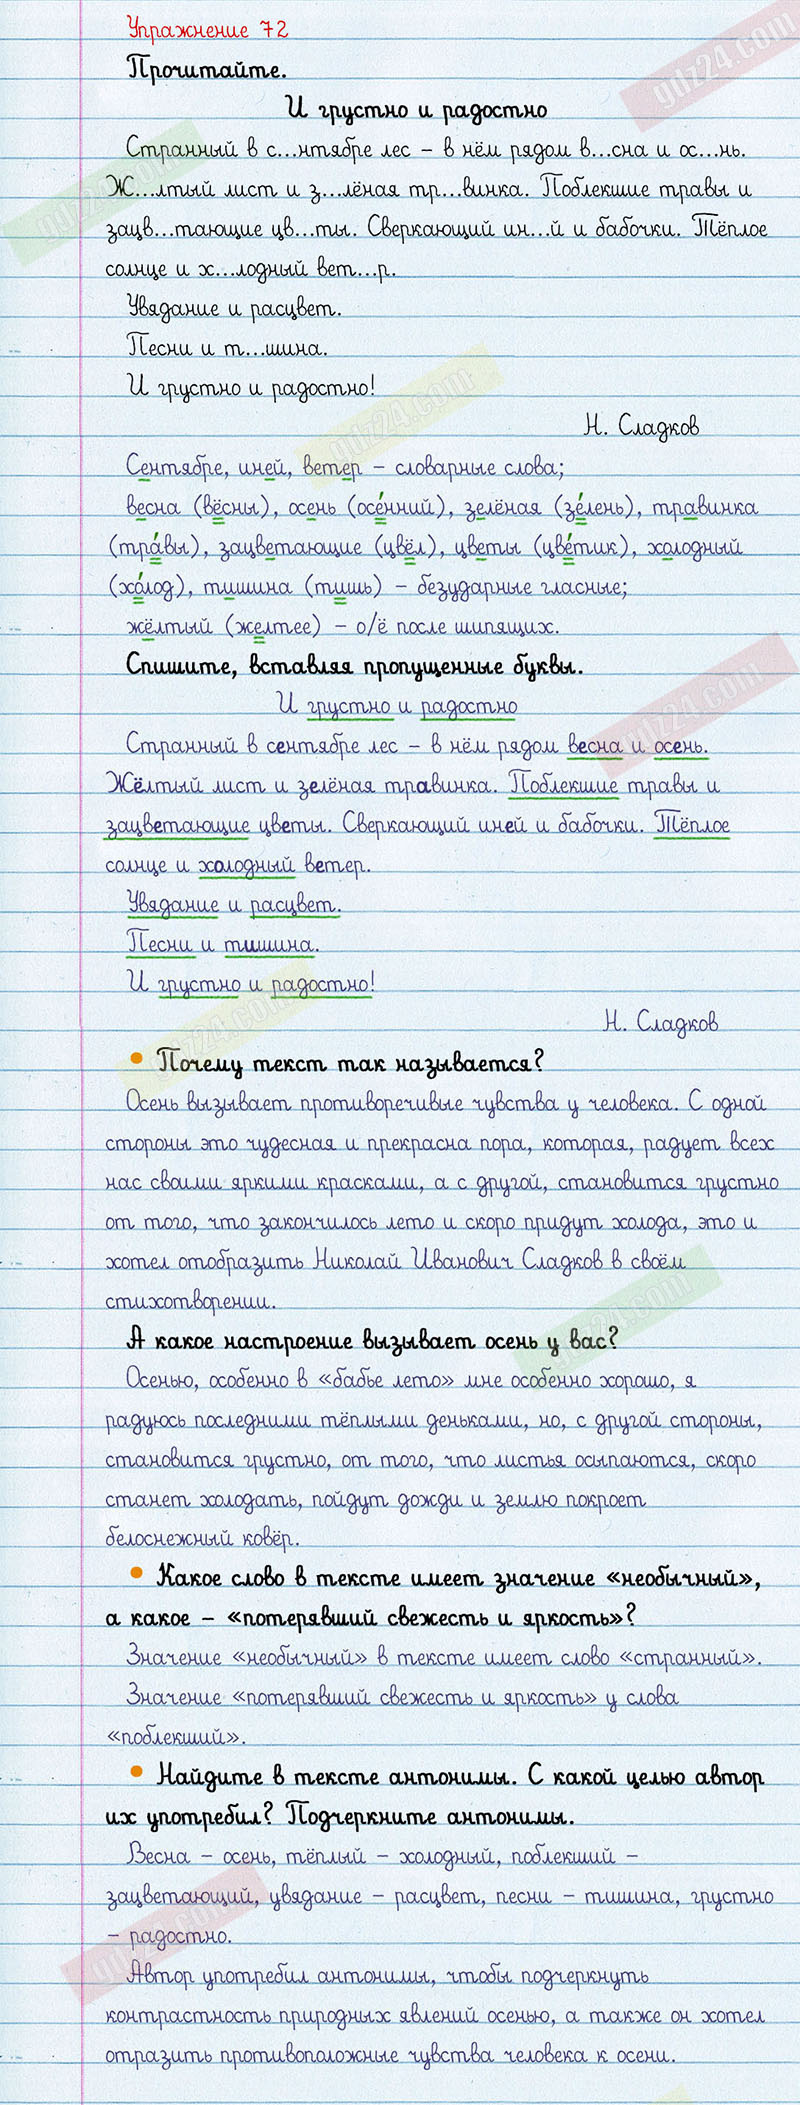 Упражнение 72
Прочитайте.
И грустно и радостно
Странный в с...нтябре лес – в нём рядом в...сна и ос...нь.
Ж...лтый лист и з...лёная тр...винка. Поблекшие травы и
зацв...тающие цв...ты. Сверкающий ин...й и бабочки. Тёплое
солнце и х...лодный вет...р.
Увядание и расцвет.
Песни и т...шина.
И грустно и радостно!
Н. Сладков
Сентябре, иней, ветер – словарные слова;
весна (вёсны), осень (осе́нний), зелёная (зе́лень), травинка
(тра́вы), зацветающие (цвёл), цветы (цве́тик), холодный
(хо́лод), тишина (тишь) – безударные гласные;
жёлтый (желтее) – о/ё после шипящих.
Спишите, вставляя пропущенные буквы.
И грустно и радостно
Странный в сентябре лес – в нём рядом весна и осень.
Жёлтый лист и зелёная травинка. Поблекшие травы и
зацветающие цветы. Сверкающий иней и бабочки. Тёплое
солнце и холодный ветер.
Увядание и расцвет.
Песни и тишина.
И грустно и радостно!
Н. Сладков
• Почему текст так называется?
Осень вызывает противоречивые чувства у человека. С одной
стороны это чудесная и прекрасна пора, которая, радует всех
нас своими яркими красками, а с другой, становится грустно
от того, что закончилось лето и скоро придут холода, это и
хотел отобразить Николай Иванович Сладков в своём
стихотворении.
А какое настроение вызывает осень у вас?
Осенью, особенно в «бабье лето» мне особенно хорошо, я
радуюсь последними тёплыми деньками, но, с другой стороны,
становится грустно, от того, что листья осыпаются, скоро
станет холодать, пойдут дожди и землю покроет
белоснежный ковёр.
• Какое слово в тексте имеет значение «необычный»,
а какое – «потерявший свежесть и яркость»?
Значение «необычный» в тексте имеет слово «странный».
Значение «потерявший свежесть и яркость» у слова
«поблекший».
• Найдите в тексте антонимы. С какой целью автор
их употребил? Подчеркните антонимы.
Весна – осень, тёплый – холодный, поблекший –
зацветающий, увядание – расцвет, песни – тишина, грустно
– радостно.
Автор употребил антонимы, чтобы подчеркнуть
контрастность природных явлений осенью, а также он хотел
отразить противоположные чувства человека к осени.
gdz24.com
gdz24.com
gdz24.com
gdz24.com
gdz24.com
gdz24.com
gdz24.com